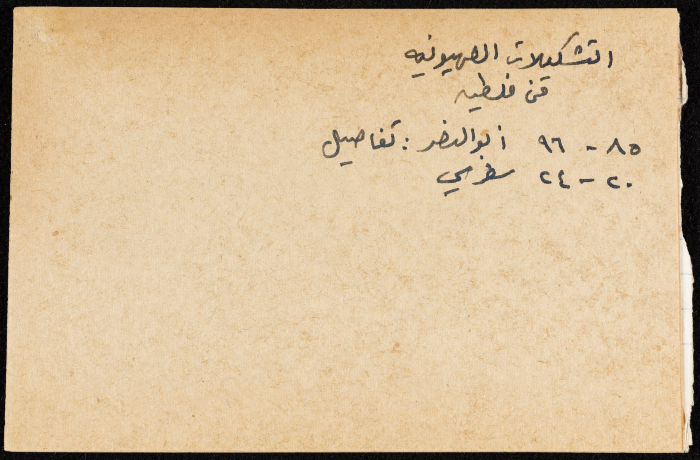 التشكيلات الصهيونيه
في فلسطين
٨٥ - ٩٦ أبو النصر : تفاصيل
٢٠ - ٢٤